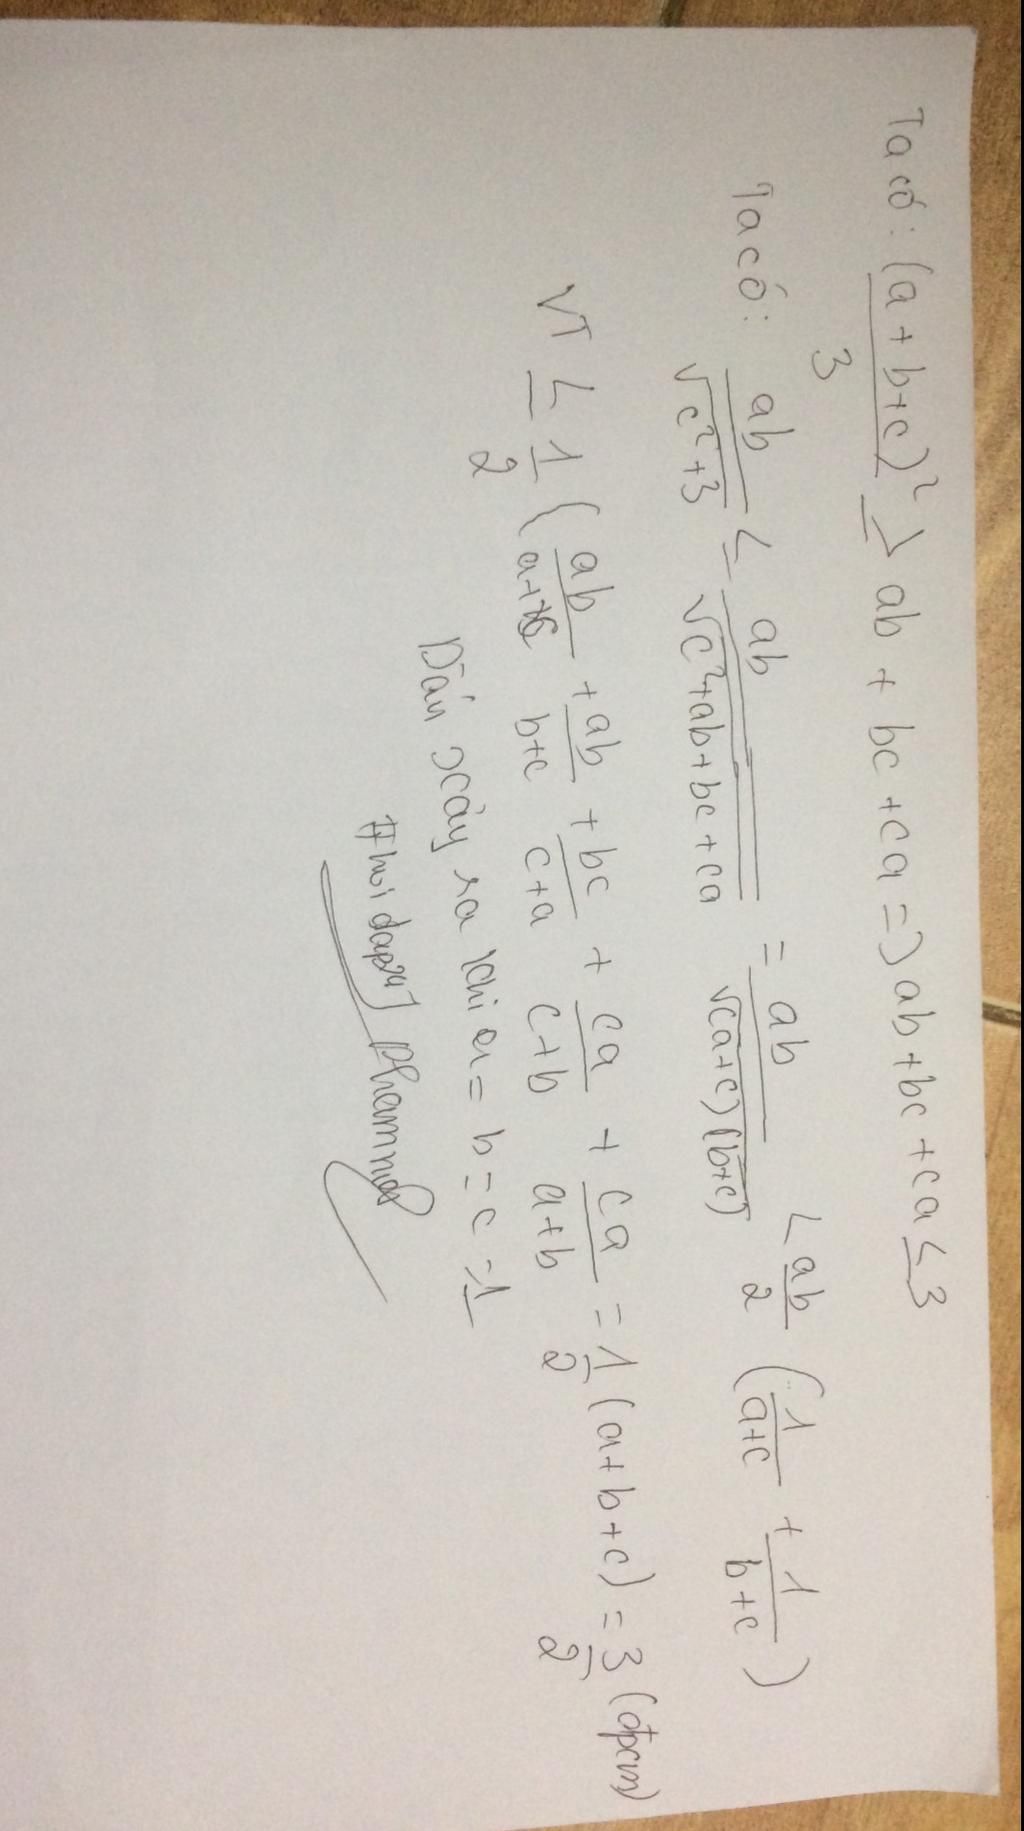 Ta có: (a+b+c)²/3 ≥ ab + bc + ca => ab + bc + ca ≤ 3
Ta có: ab/√(c²+3) ≤ ab/√(c²+ab+bc+ca) = ab/√((a+c)(b+c)) < ab/2 (1/(a+c) + 1/(b+c))
VT ≤ 1/2 (ab/(a+c) + ab/(b+c) + bc/(c+a) + ca/(c+b) + ca/(a+b) = 1/2 (a+b+c) = 3/2 (đpcm)
Dấu xảy ra khi a = b = c = 1
#hoidap247